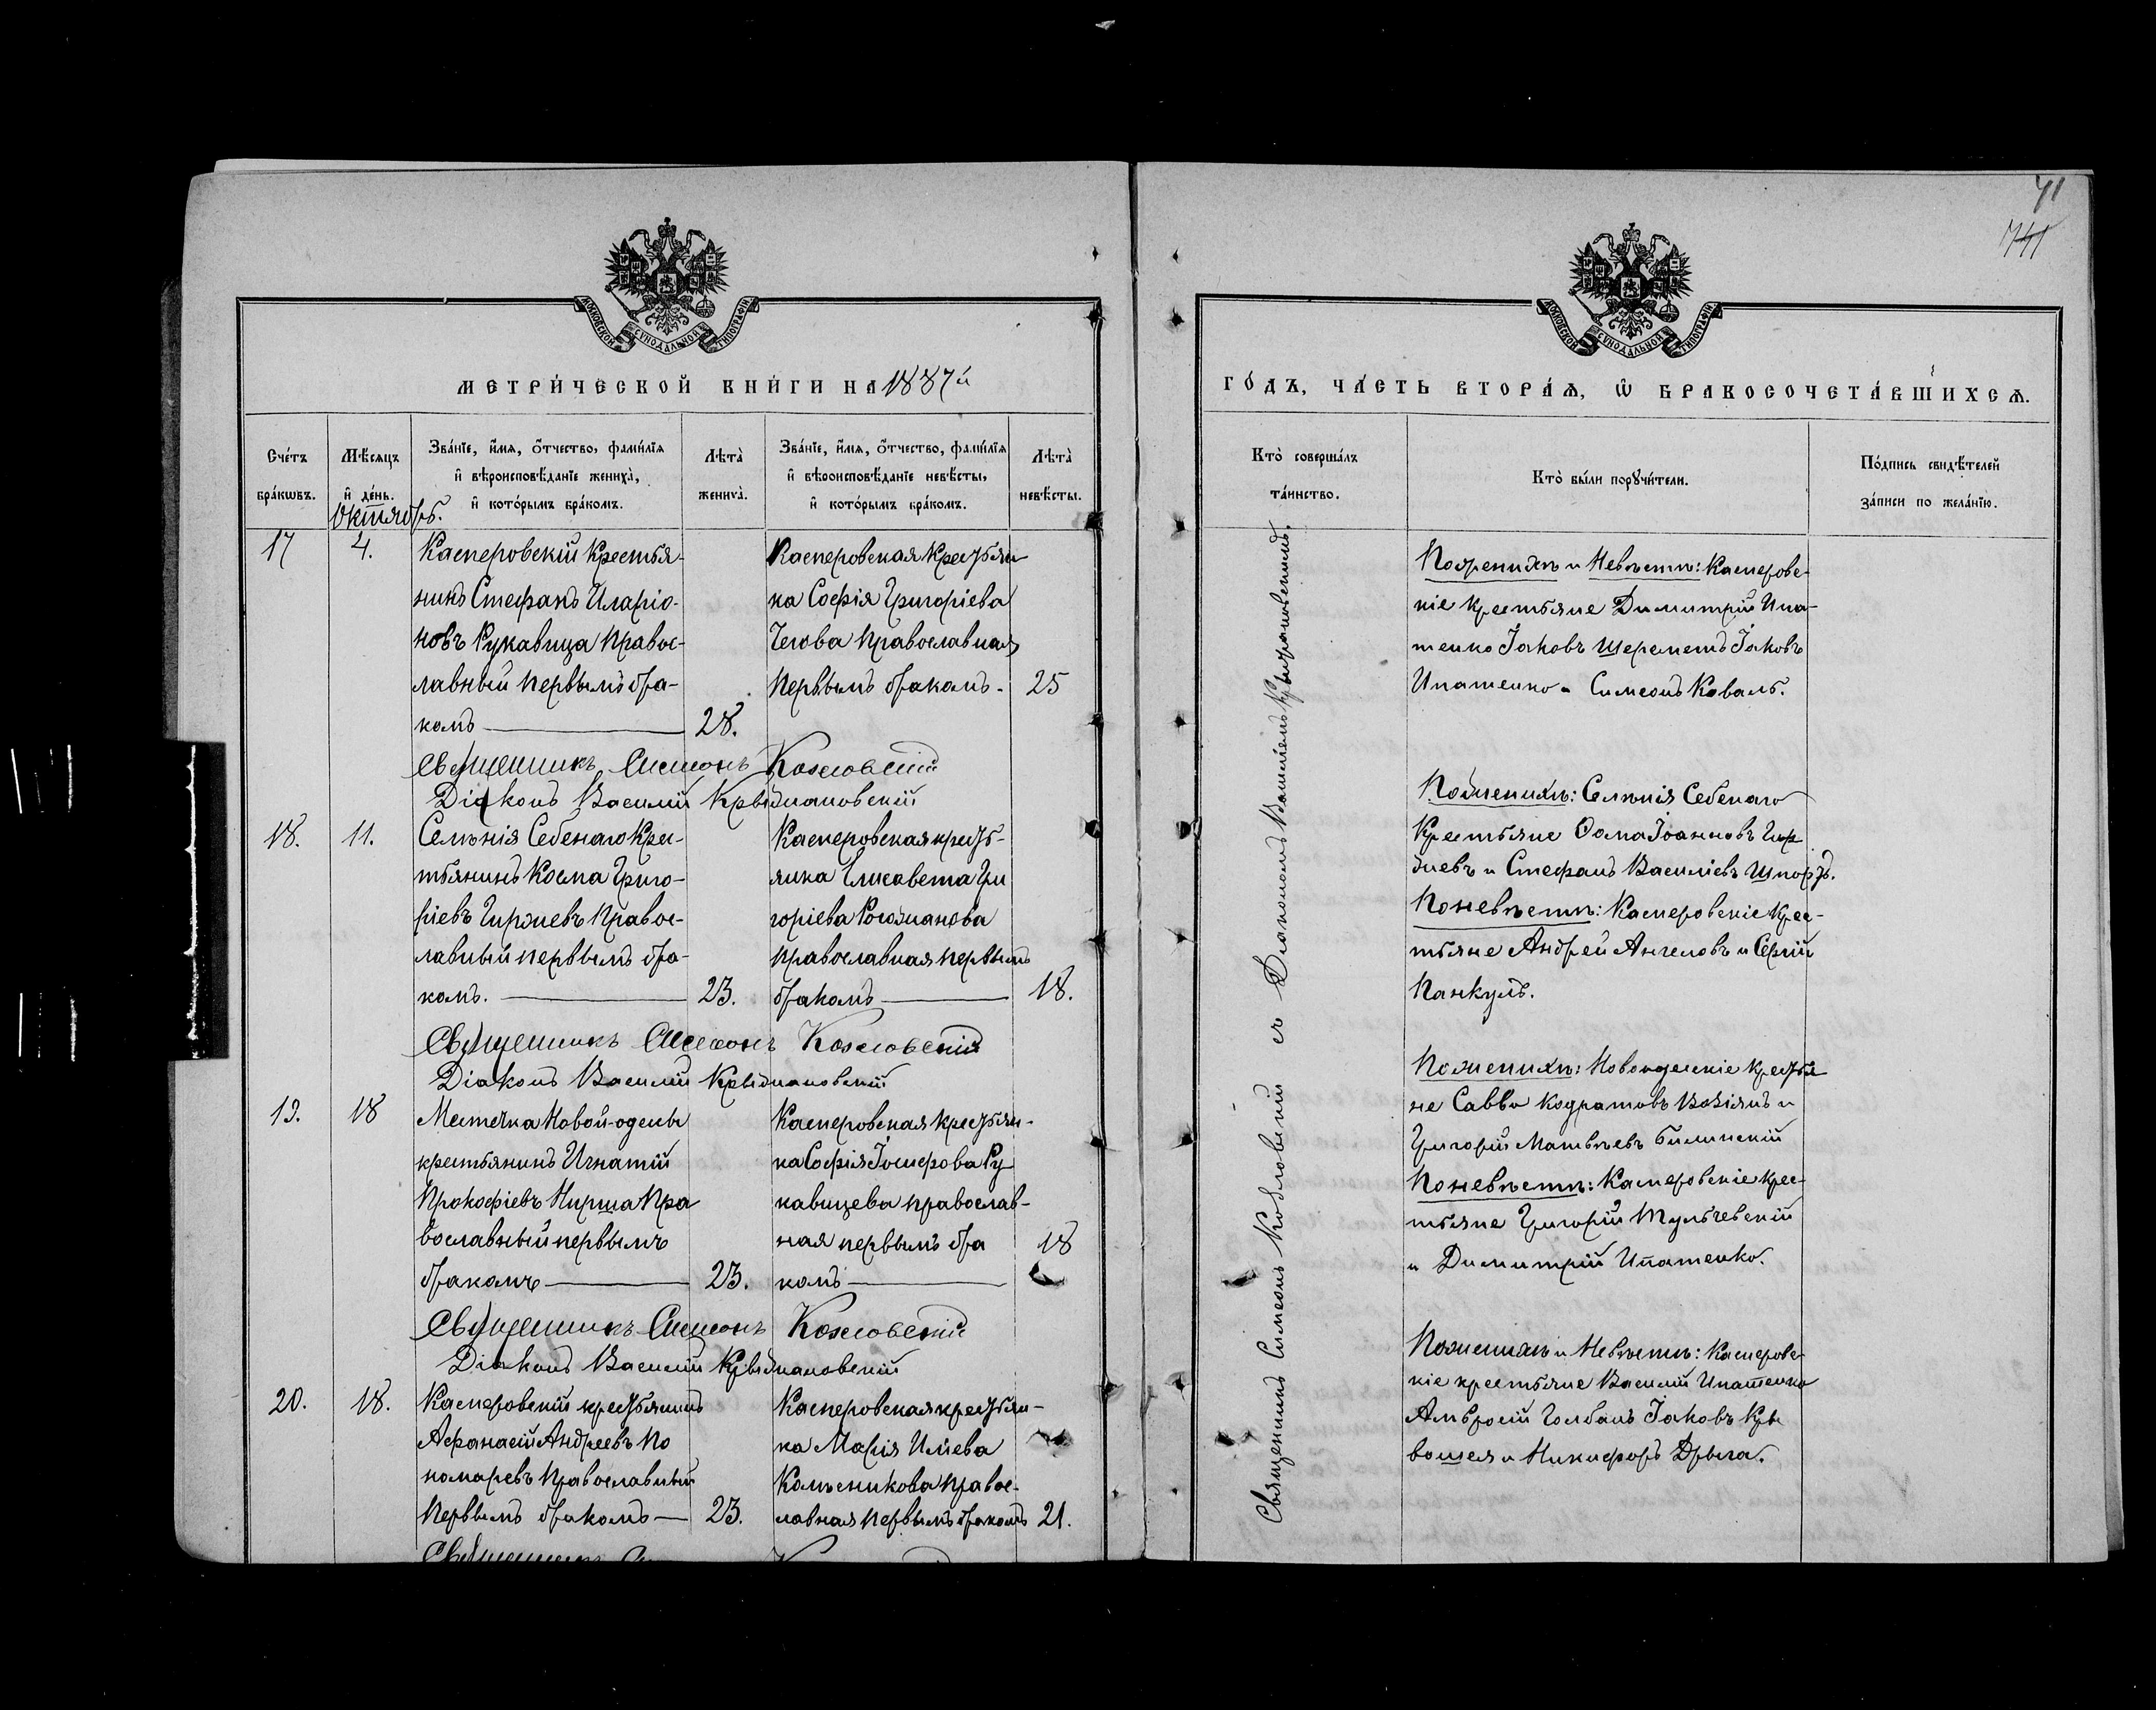 71
741
МОСКОВСКОЙ СУНОДАЛЬНОЙ ТИПОГРАФІИ
МЕТРИ́ЧЕСКОЙ КНИ́ГИ НА 1887й
Сче́тъ бра́кѡвъ.
Мѣ́сяцъ и҆ де́нь.
Октябрь.
Зва́нїе, и҆́мя, ѻ҆́тчество, фами́лїя
и҆ вѣроисповѣ́данїе жениха̀,
и҆ кото́рымъ бра́комъ.
Лѣ́та̀ жениха̀.
Зва́нїе, и҆́мя, ѻ҆́тчество, фами́лїя
и҆ вѣроисповѣ́данїе невѣ́сты,
и҆ кото́рымъ бра́комъ.
Лѣ́та̀ невѣ́сты.
17
4.
Касперовскій Крестья-
нинъ Стефанъ Иларіо-
новъ Рукавица Правос-
лавный Первымъ бра-
комъ
28.
Касперовская Крестьян
ка Софія Григоріева
Православная
Первымъ бракомъ.
25
Священникъ Симеонъ Козловскій
Діаконъ Василій
18.
11.
Селенія Себенаго Крес-
тьянинъ Косма Григо-
ріевъ Гиржевъ Правос-
лавный первымъ бра-
комъ.
23.
Касперовская кресть-
янка Елисавета Гри
горіева
православная первымъ
бракомъ
18.
Священникъ Симеонъ Козловскій
Діаконъ Василій
19.
18
Местечка Новой-одессы
крестьянинъ Игнатій
Прокофіевъ Нирша Пра
вославный первымъ
бракомъ
23.
Касперовская крестьян-
ка Софія Іосифова Ру
кавицева православ-
ная первымъ бра
комъ
18
Священникъ Симеонъ Козловскій
Діаконъ Василій
20.
18.
Касперовскій крестьянинъ
Афанасій Андреевъ По
номаревъ Православный
Первымъ бракомъ
23.
Касперовская крестьян-
ка Марія Иліева
Колесникова правос-
лавная Первымъ бракомъ
21.
МОСКОВСКОЙ СУНОДАЛЬНОЙ ТИПОГРАФІИ
ГО́ДЪ, ЧА́СТЬ ВТОРА́Я, Ѡ҆ БРАКОСОЧЕТА́ВШИХСЯ.
Кто̀ соверша́лъ
та́инство.
Кто̀ бы́ли порꙋчи́тели.
По́дпись свидѣ́телей
за́писи по жела́нїю.
Священникъ Симеонъ Козловскій съ Діакономъ Василіемъ
Поженихѣ и Невѣстѣ: Касперовс-
кіе Крестьяне Димитрій Ипа-
тенко Іаковъ Шереметъ Іаковъ
Ипатенко и Симеонъ Коваль.
Поженихѣ: Селенія Себенаго
Крестьяне Ѳома Іоанновъ Гир
жевъ и Стефанъ Василіевъ
Поневѣстѣ: Касперовскіе Крес-
тьяне Андрей Ангеловъ и Сергій
Панкулъ.
Поженихѣ: Новоодесскіе крестья
не Савва Кодратовъ и
Григорій Матвѣевъ Билинскій
Поневѣстѣ: Касперовскіе крес-
тьяне Григорій Тульчевскій
и Димитрій Ипатенко.
Поженихѣ и Невѣстѣ: Касперовс-
кіе крестьяне Василій Ипатенко
Амвросій Голбанъ Іаковъ Кри
вошея и Никифоръ Дрыга.